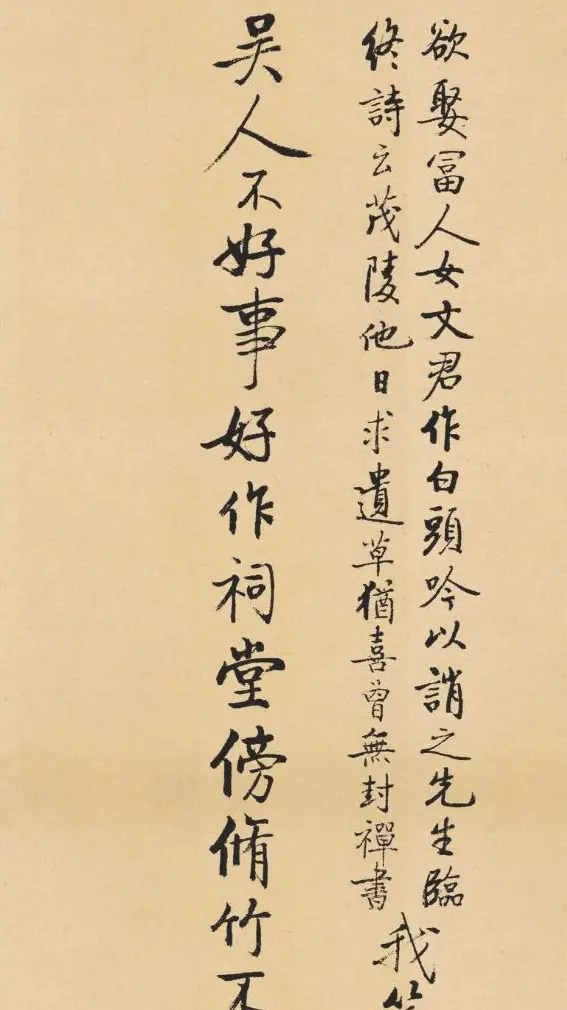 欲娶冨人女文君作白頭吟以誚之先生臨
終詩云茂陵他日求遺草猶喜曾無封禪書
我
吳人不好事好作祠堂傍脩竹不